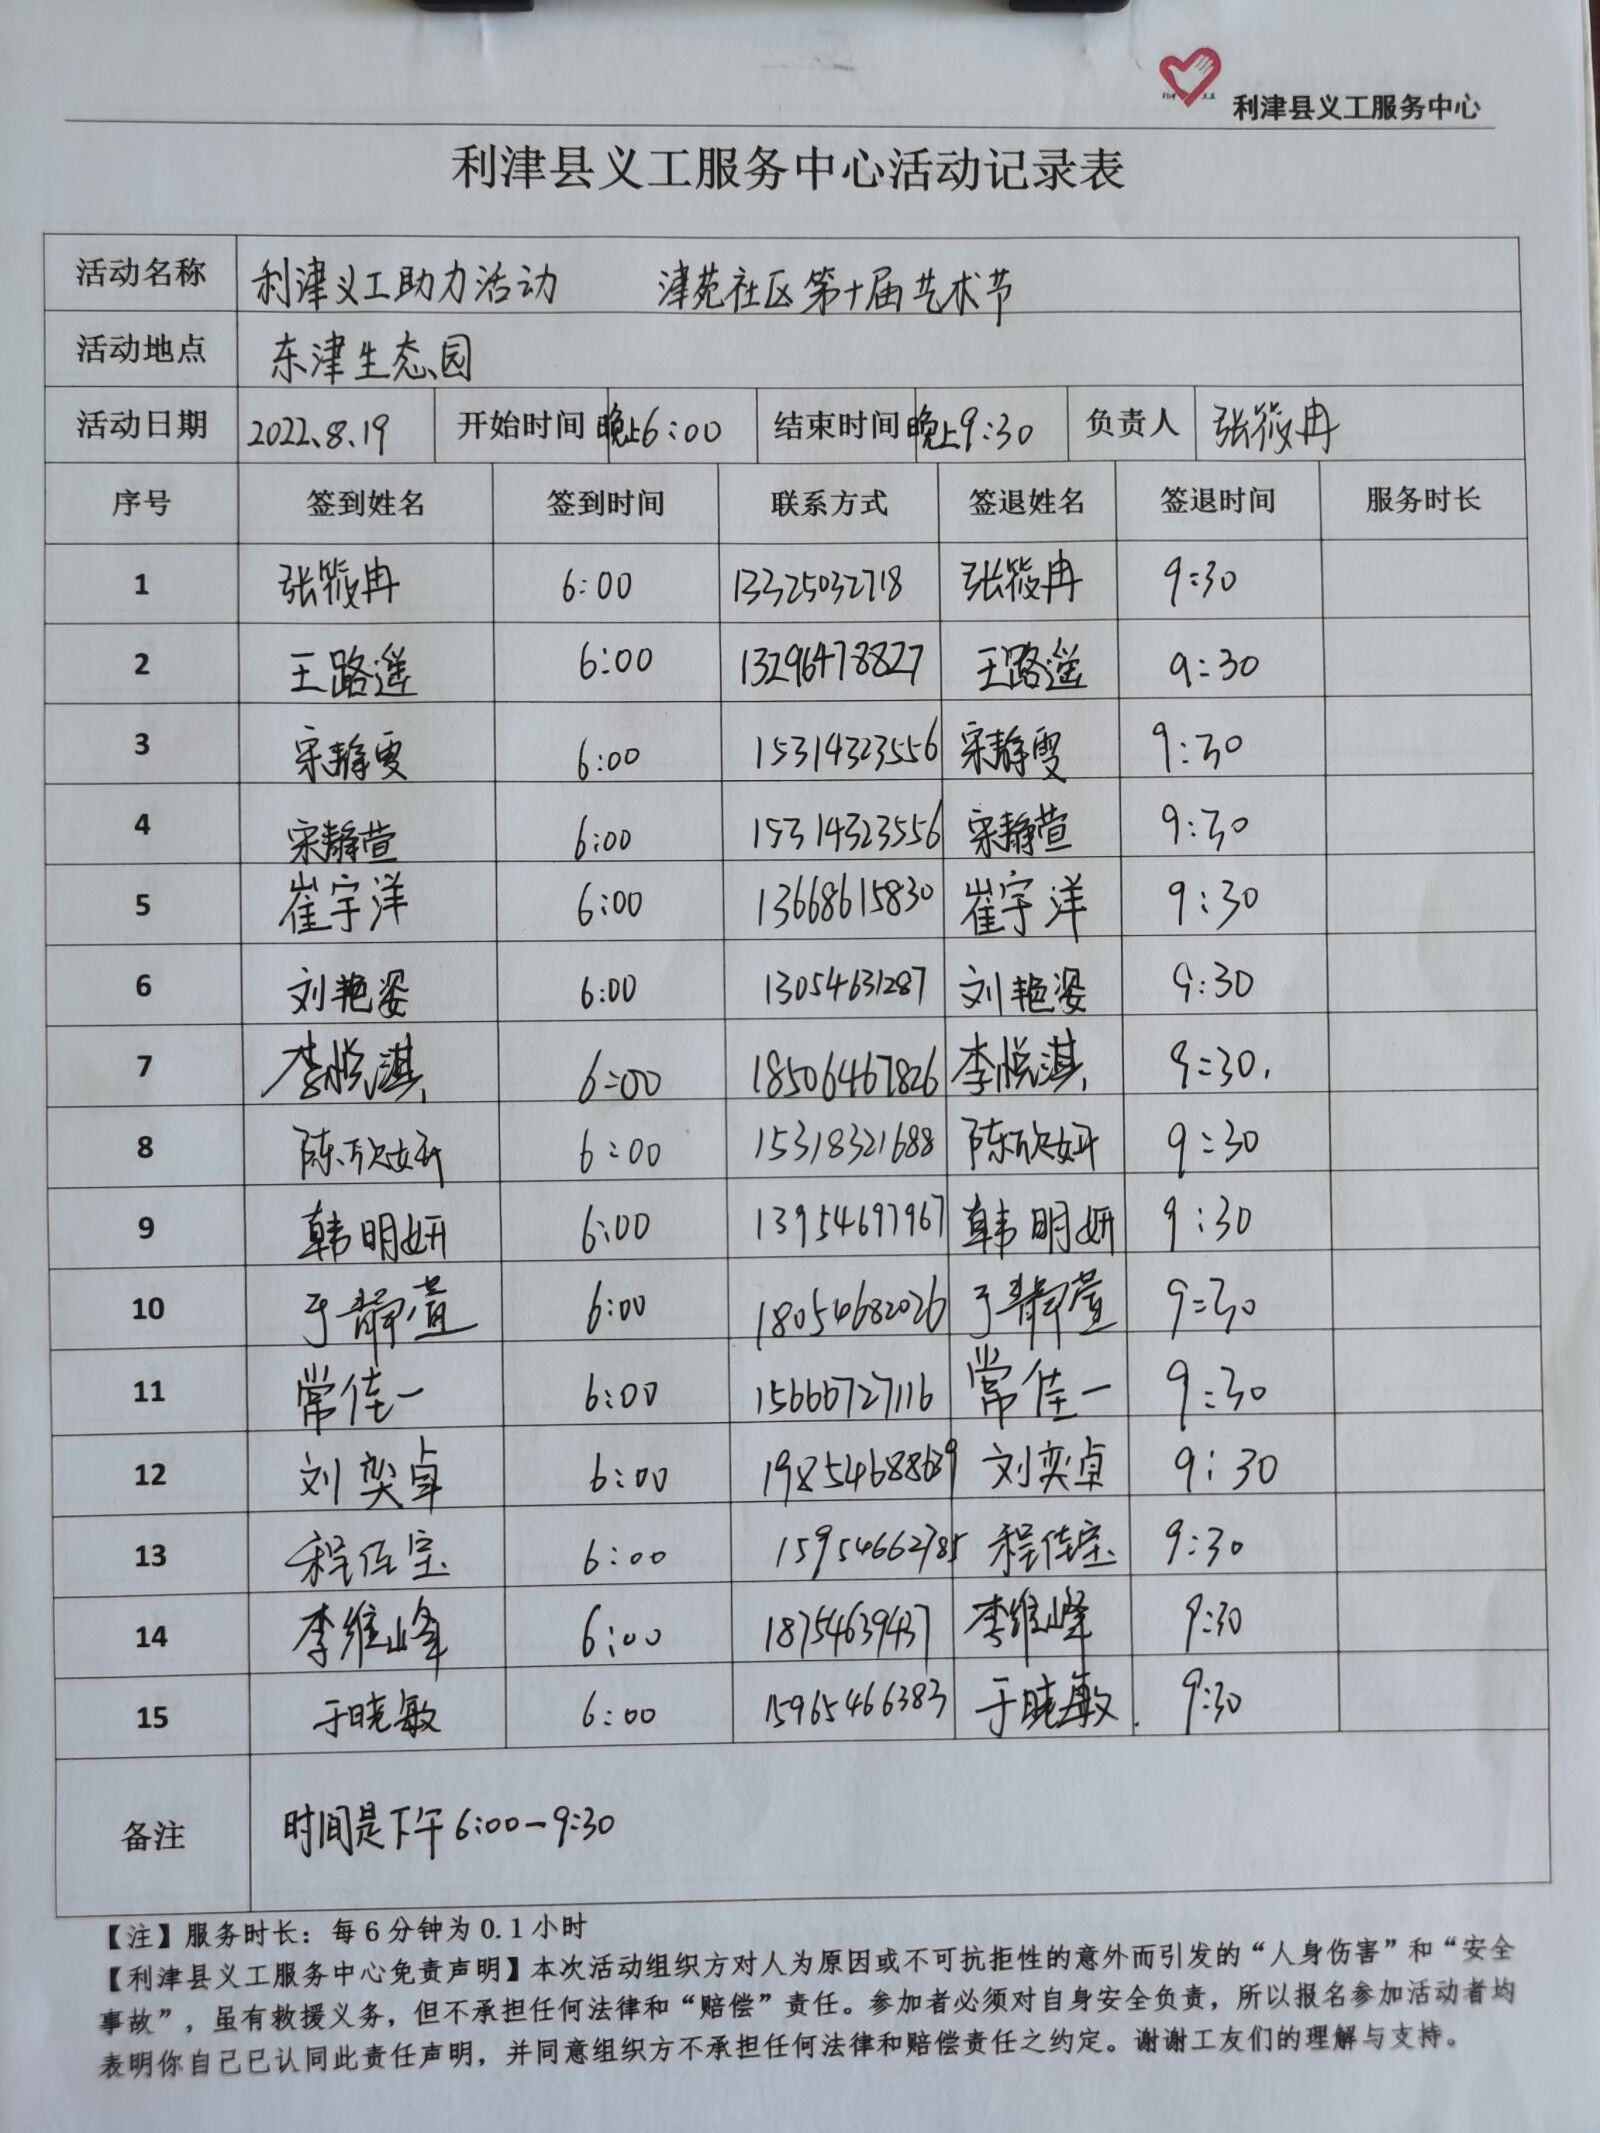 利津县义工服务中心
利津县义工服务中心活动记录表
活动名称 利津义工助力活动 津苑社区第十届艺术节
活动地点 东津生态园
活动日期 2022.8.19 开始时间 晚上6:00 结束时间 晚上9:30 负责人 张筱冉
序号 签到姓名 签到时间 联系方式 签退姓名 签退时间 服务时长
1 张筱冉 6:00 13325032718 张筱冉 9:30
2 王路遥 6:00 13296478827 王路遥 9:30
3 宋静雯 6:00 15314323556 宋静雯 9:30
4 宋静萱 6:00 15314323556 宋静萱 9:30
5 崔宇洋 6:00 13668615830 崔宇洋 9:30
6 刘艳姿 6:00 13054631287 刘艳姿 9:30
7 李悦淇 6:00 18506467826 李悦淇 9:30.
8 陈欣妍 6:00 15318321688 陈欣妍 9:30
9 韩明妍 6:00 13954697967 韩明妍 9:30
10 于静萱 6:00 18054682026 于静萱 9:30
11 常佳一 6:00 15666727116 常佳一 9:30
12 刘奕卓 6:00 刘奕卓 9:30
13 程佳宝 6:00 15954662785 程佳宝 9:30
14 李维峰 6:00 18754639437 李维峰 9:30
15 于晓敏 6:00 15965466383 于晓敏 9:30
备注 时间是下午6:00-9:30
【注】服务时长：每6分钟为0.1小时
【利津县义工服务中心免责声明】本次活动组织方对人为原因或不可抗拒性的意外而引发的“人身伤害”和“安全
事故”，虽有救援义务，但不承担任何法律和“赔偿”责任。参加者必须对自身安全负责，所以报名参加活动者均
表明你自己已认同此责任声明，并同意组织方不承担任何法律和赔偿责任之约定。谢谢工友们的理解与支持。